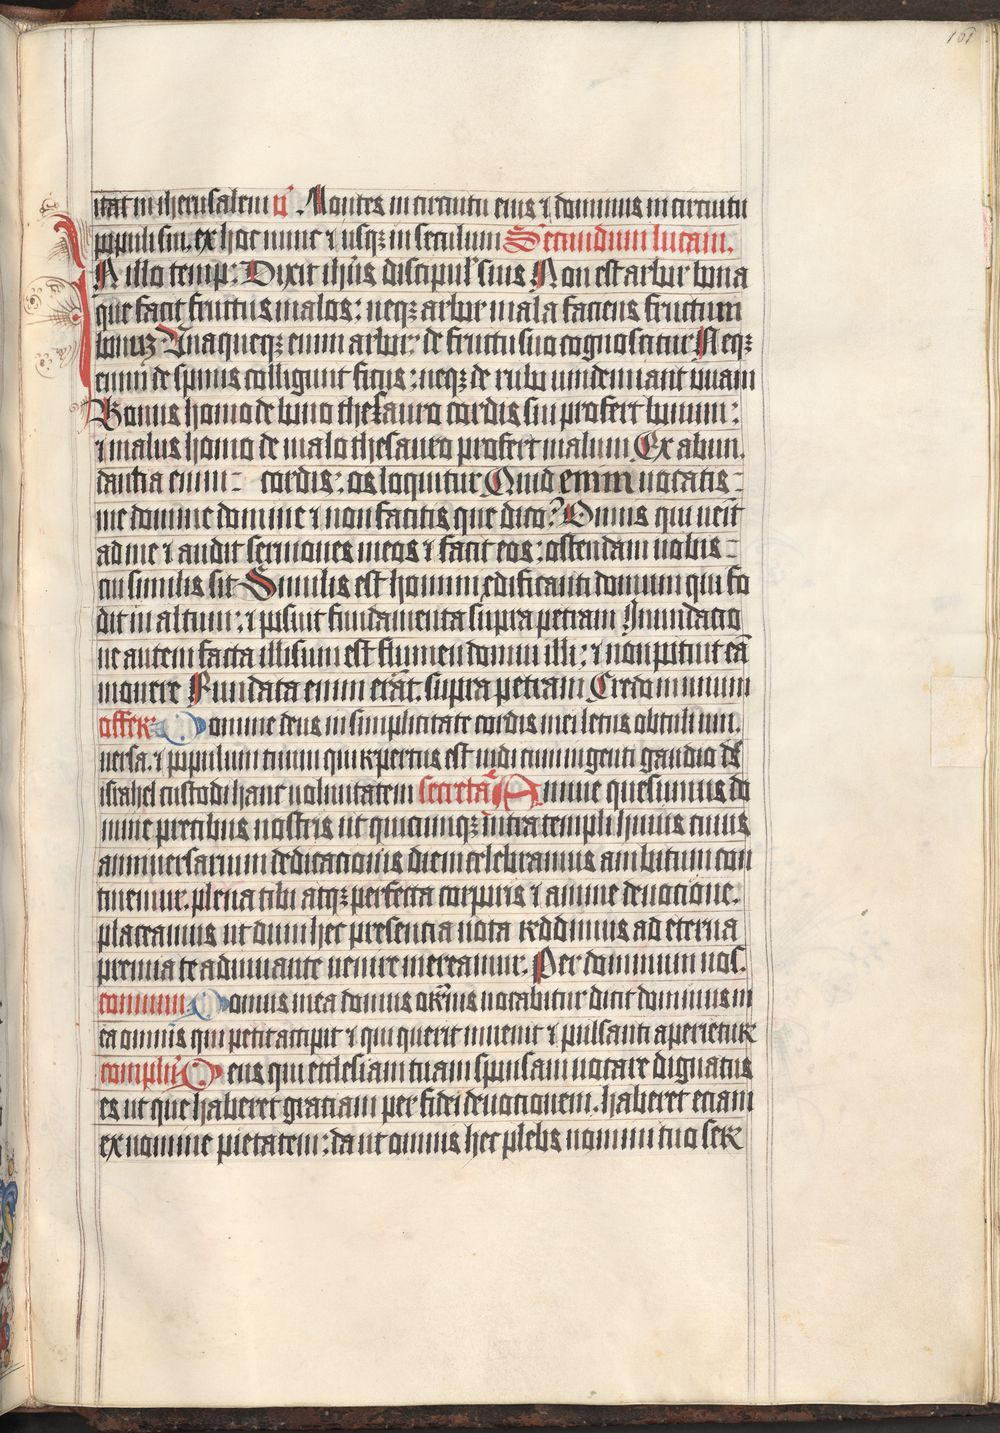 161
itat in iherusalem v̾ . Montes in circuitu eius ⁊ dominus in circuitu
populi sui. ex hoc nunc ⁊ usqꝫ in seculum Secundum lucam.
IN illo temp: Dixit ihūs discipul' suis Non est arbor bona
que facit fructus malos: neqꝫ arbor mala faciens fructum
bonuꝫ. Unaqueqꝫ enim arbor: de fructu suo cognoscitur Neqꝫ
enim de spinis colligunt ficus: neqꝫ de rubo uindemiant uuam
Bonus homo de bono thesauro cordis sui profert bonum:
⁊ malus homo de malo thesauro profert malum Ex abun.
dantia enim: cordis: os loquitur Quid enim uocatis:
me domine domine ⁊ non facitis que dico? Omnis qui uenit
ad me ⁊ audit sermones meos ⁊ facit eos: ostendam uobis:
cui similis sit Similis est homini edificanti domum qui fo
dit in altum: ⁊ posuit fundamenta supra petram Inundacio
ne autem facta illisum est flumen domui illi: ⁊ non potuit eā
mouere Fundata enim erāt. supra petram Credo in unum
offer. Domine deus in simplicitate cordis mei letus obtuli uni.
uersa. ⁊ populum tuum qui repertus est uidi cum ingenti gaudio ds̄
israhel custodi hanc uoluntatem secretā Annue quesumus do
mine precibus nostris ut quicumqꝫ intra templi huius cuius
anniuersarium dedicacionis diem celebramus ambitum con
tinemur. plena tibi atqꝫ perfecta corporis ⁊ anime deuocione.
placeamus ut dum hec presencia uota reddimus ad eterna
premia te adiuuante uenire mereamur. Per dominum nos.
comium. Domus mea domus orōnis uocabitur dicit dominus in
ea omnis qui petit accipit ⁊ qui querit inuenit ⁊ pulsanti aperietur
complīr Deus qui ecclesiam tuam sponsam uocare dignatus
es ut que haberet gratiam per fidei deuotionem. haberet eciam
ex nomine pietatem: da ut omnis hec plebs nomini tuo ser